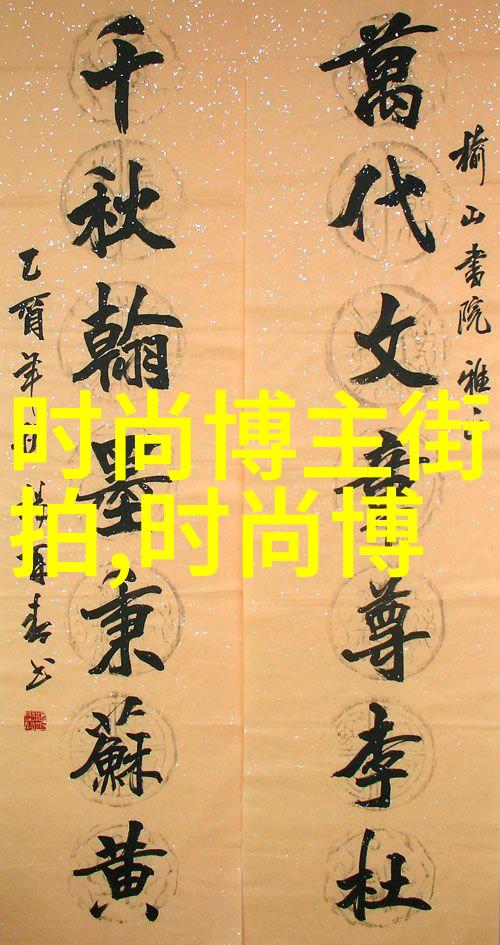 榆山書院雅
萬代文章尊李杜
千秋翰墨秉蘇黄
时尚博主街
拍,时尚博